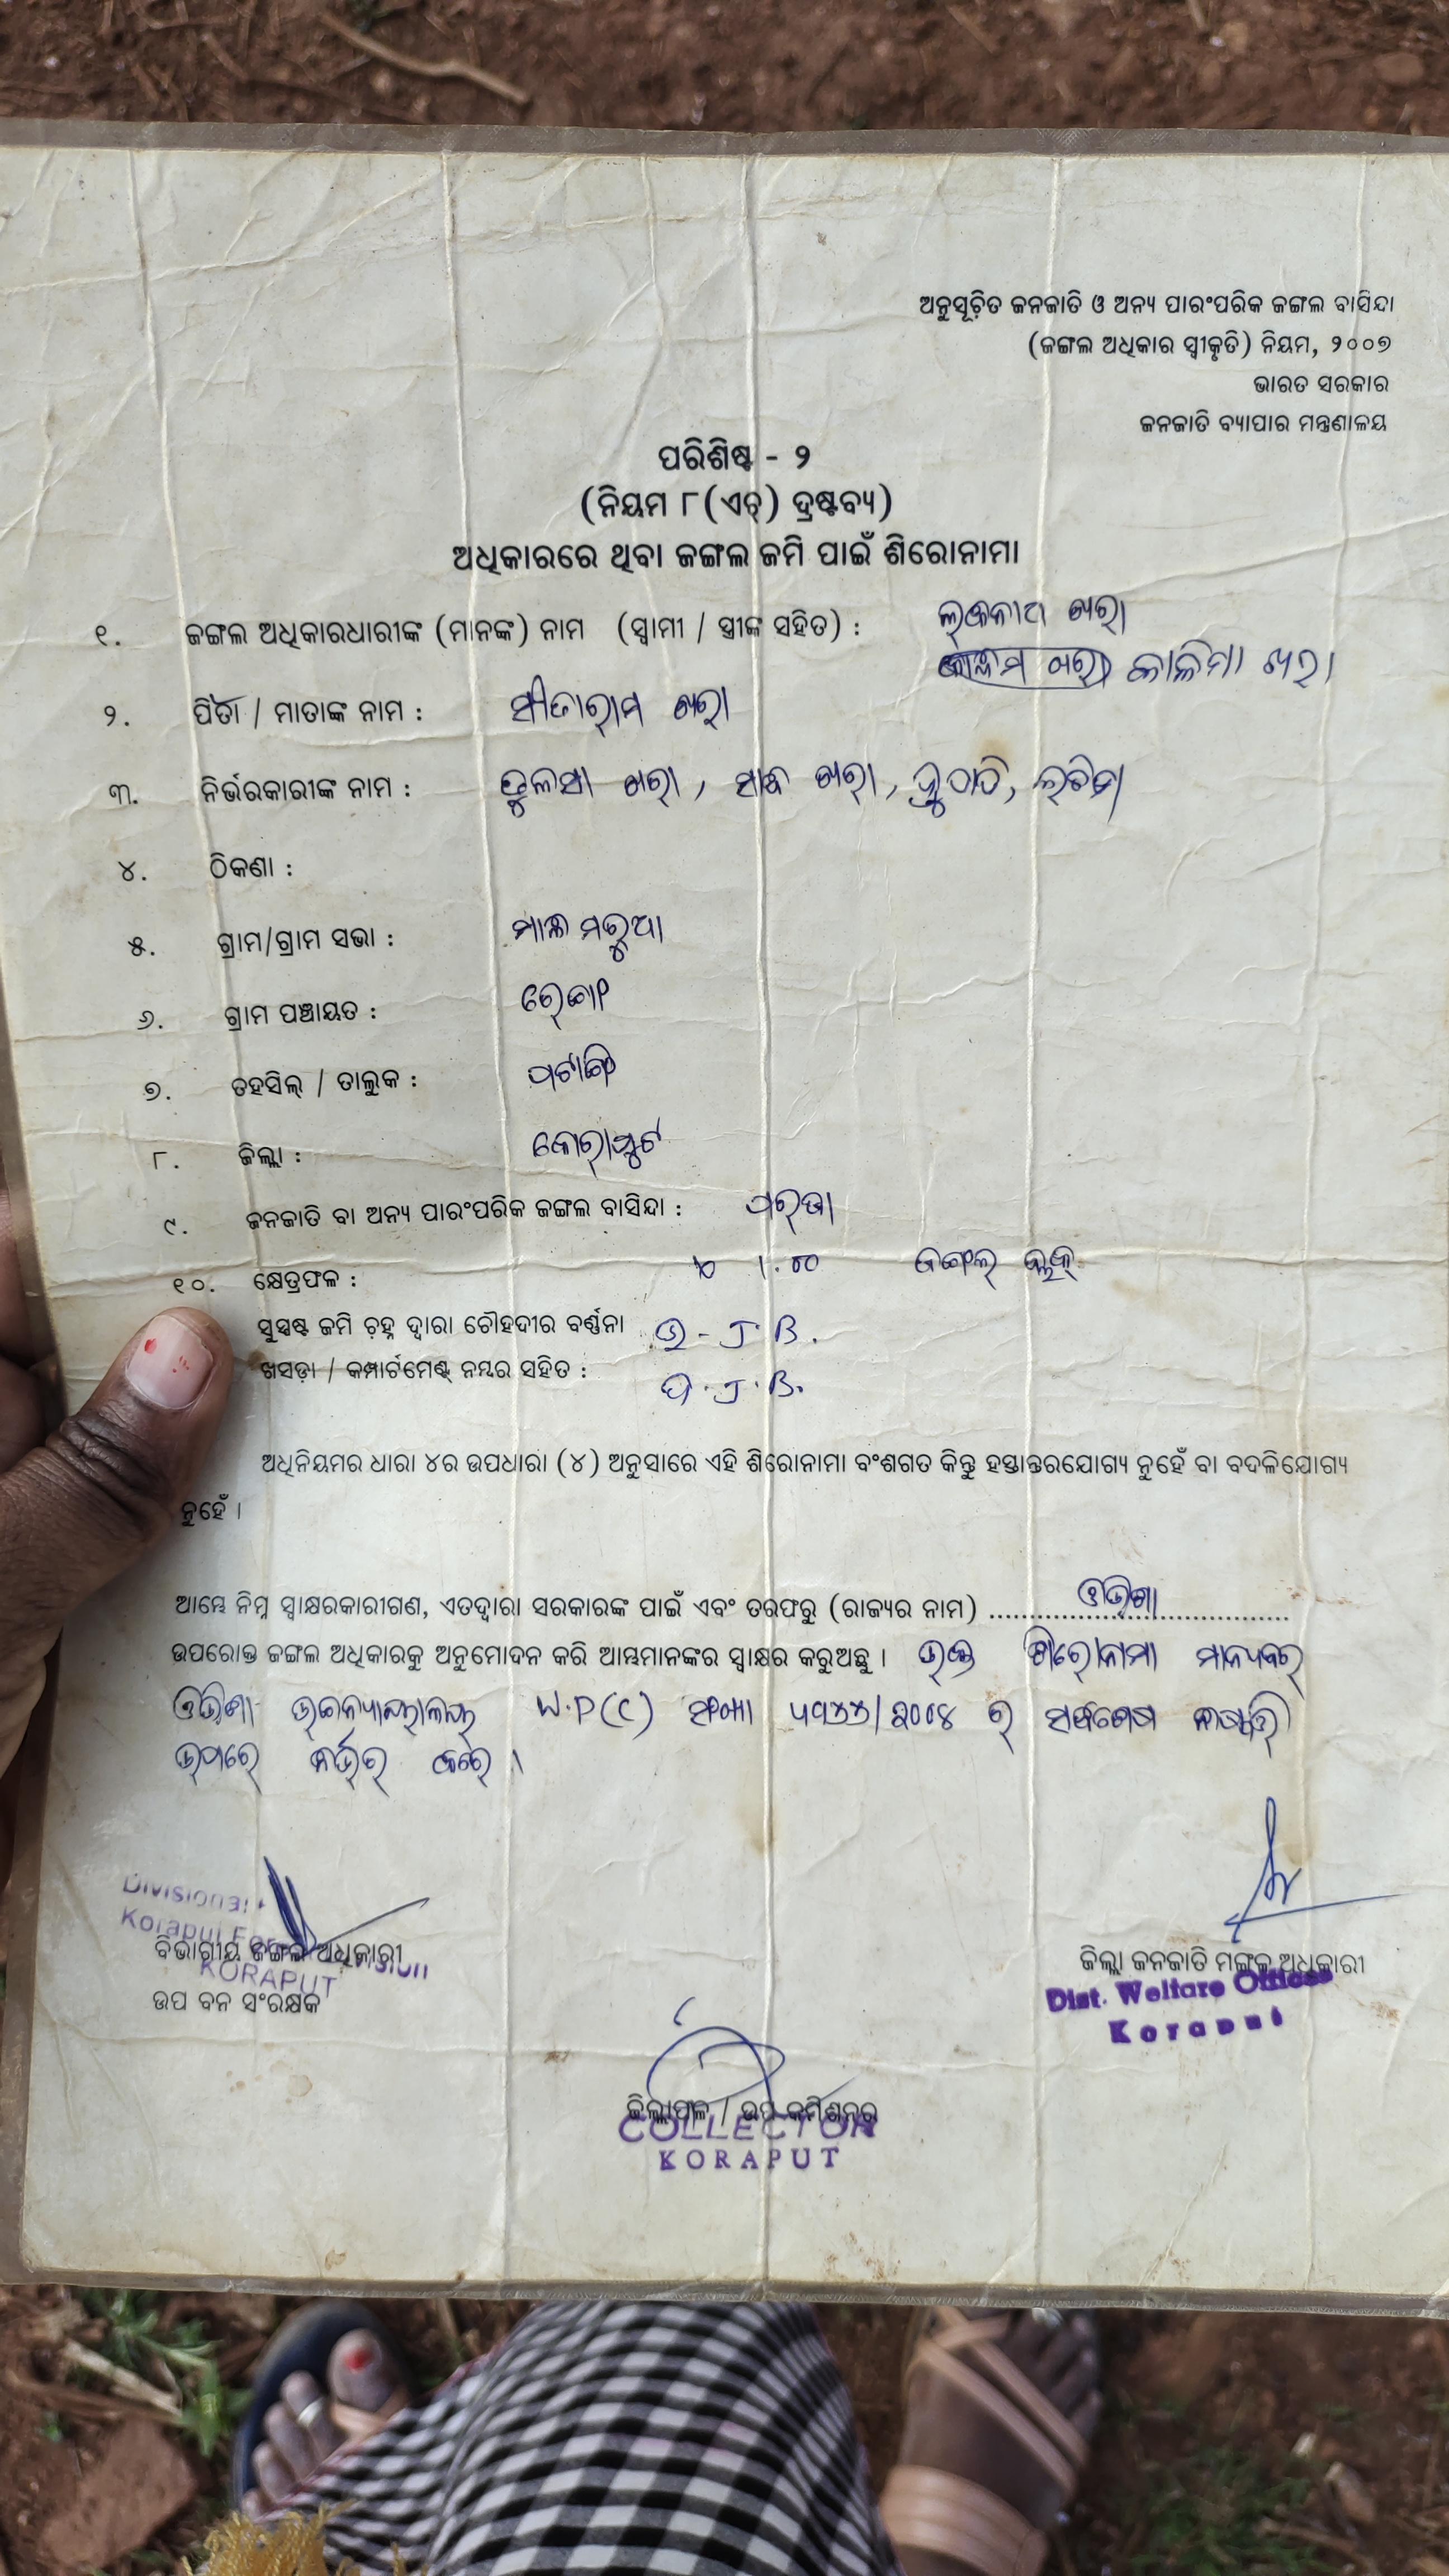 ଅନୁସୂଚିତ ଜନଜାତି ଓ ଅନ୍ୟ ପାରଂପରିକ ଜଙ୍ଗଲ ବାସିନ୍ଦା
(ଜଙ୍ଗଲ ଅଧିକାର ସ୍ୱୀକୃତି) ନିୟମ, ୨୦୦୭
ଭାରତ ସରକାର
ଜନଜାତି ବ୍ୟାପାର ମନ୍ତ୍ରଣାଳୟ
ପରିଶିଷ୍ଟ - ୨
(ନିୟମ ୮(ଏଚ୍) ଦ୍ରଷ୍ଟବ୍ୟ)
ଅଧିକାରରେ ଥିବା ଜଙ୍ଗଲ ଜମି ପାଇଁ ଶିରୋନାମା
୧. ଜଙ୍ଗଲ ଅଧିକାରଧାରୀଙ୍କ (ମାନଙ୍କ) ନାମ (ସ୍ୱାମୀ / ସ୍ତ୍ରୀଙ୍କ ସହିତ) : ଖରା
କାଳିମା ଖରା
୨. ପିତା / ମାତାଙ୍କ ନାମ : ସୀତାରାମ ଖରା
୩. ନିର୍ଭରକାରୀଙ୍କ ନାମ : ତୁଳସା ଖରା, ଖରା,
୪. ଠିକଣା :
୫. ଗ୍ରାମ/ଗ୍ରାମ ସଭା : ମାଳ ମରୁଆ
୬. ଗ୍ରାମ ପଞ୍ଚାୟତ :
୭. ତହସିଲ୍ / ତାଲୁକ : ପଟାଙ୍ଗି
୮. ଜିଲ୍ଲା : କୋରାପୁଟ
୯. ଜନଜାତି ବା ଅନ୍ୟ ପାରଂପରିକ ଜଙ୍ଗଲ ବାସିନ୍ଦା : ପରଜା
୧୦. କ୍ଷେତ୍ରଫଳ : ଜଙ୍ଗଲ୍ ବ୍ଲକ୍
ସୁସ୍ପଷ୍ଟ ଜମି ଚ଼ିହ୍ନ ଦ୍ୱାରା ଚୌହଦୀର ବର୍ଣ୍ଣନା ଉ - J.B.
ଖସଡ଼ା / କମ୍ପାର୍ଟମେଣ୍ଟ୍ ନମ୍ବର ସହିତ : ପ.J.B.
ଅଧିନିୟମର ଧାରା ୪ର ଉପଧାରା (୪) ଅନୁସାରେ ଏହି ଶିରୋନାମା ବଂଶଗତ କିନ୍ତୁ ହସ୍ତାନ୍ତରଯୋଗ୍ୟ ନୁହେଁ ବା ବଦଳିଯୋଗ୍ୟ
ନୁହେଁ ।
ଆମ୍ଭେ ନିମ୍ନ ସ୍ୱାକ୍ଷରକାରୀଗଣ, ଏତଦ୍ୱାରା ସରକାରଙ୍କ ପାଇଁ ଏବଂ ତରଫରୁ (ରାଜ୍ୟର ନାମ) ଓଡିଶା
ଉପରୋକ୍ତ ଜଙ୍ଗଲ ଅଧିକାରକୁ ଅନୁମୋଦନ କରି ଆମ୍ଭମାନଙ୍କର ସ୍ୱାକ୍ଷର କରୁଅଛୁ । ଉକ୍ତ ଶିରୋନାମା ମାନ୍ୟବର
ଓଡିଶା ଉଚ୍ଚନ୍ୟାୟାଳୟ W.P(C) ସଂଖ୍ୟା ର ସର୍ବଶେଷ ନିଷ୍ପତ୍ତି
ଉପରେ ନିର୍ଭର କରେ ।
Divisional
Koraput Forest Division
KORAPUT
ବିଭାଗୀୟ ଜଙ୍ଗଲ ଅଧିକାରୀ
ଉପ ବନ ସଂରକ୍ଷକ
ଜିଲ୍ଲା ଜନଜାତି ମଙ୍ଗଳ ଅଧିକାରୀ
Dist. Welfare Officer
Koraput
ଜିଲ୍ଲାପାଳ / ଉପ କମିଶନର
COLLECTOR
KORAPUT